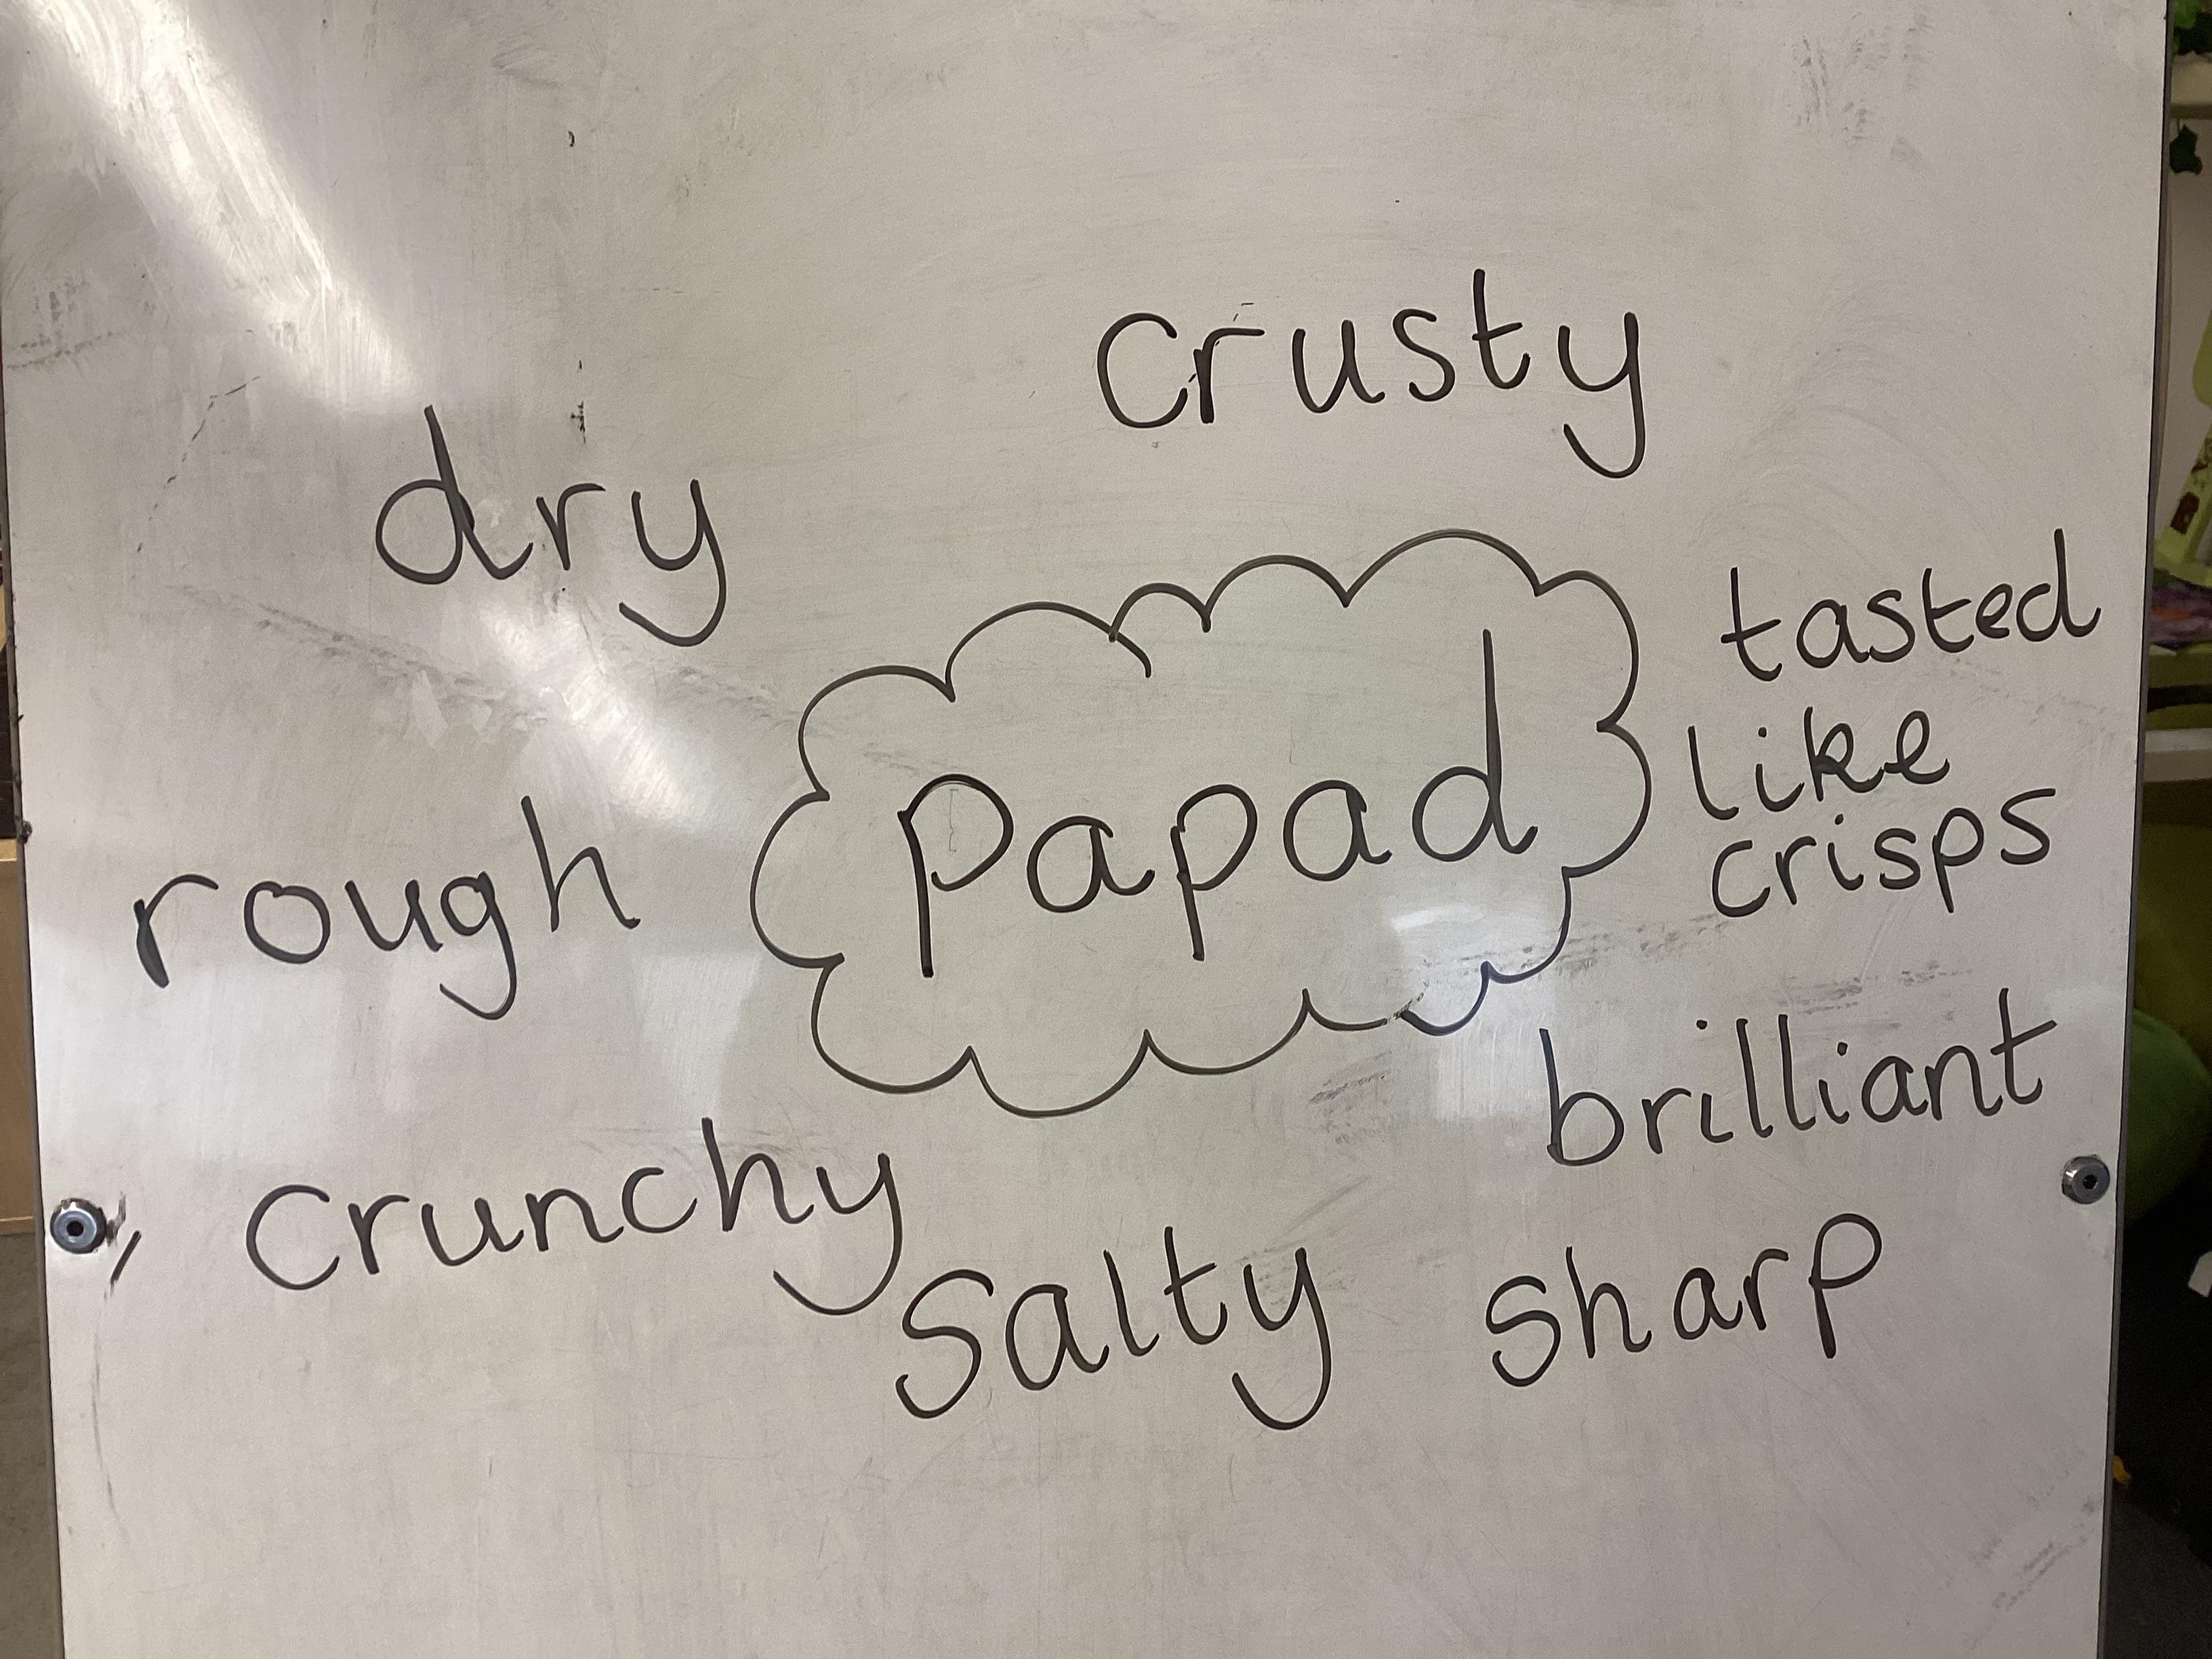 crusty
dry
tasted
like
crisps
Papad
rough
brilliant
crunchy
salty
sharp